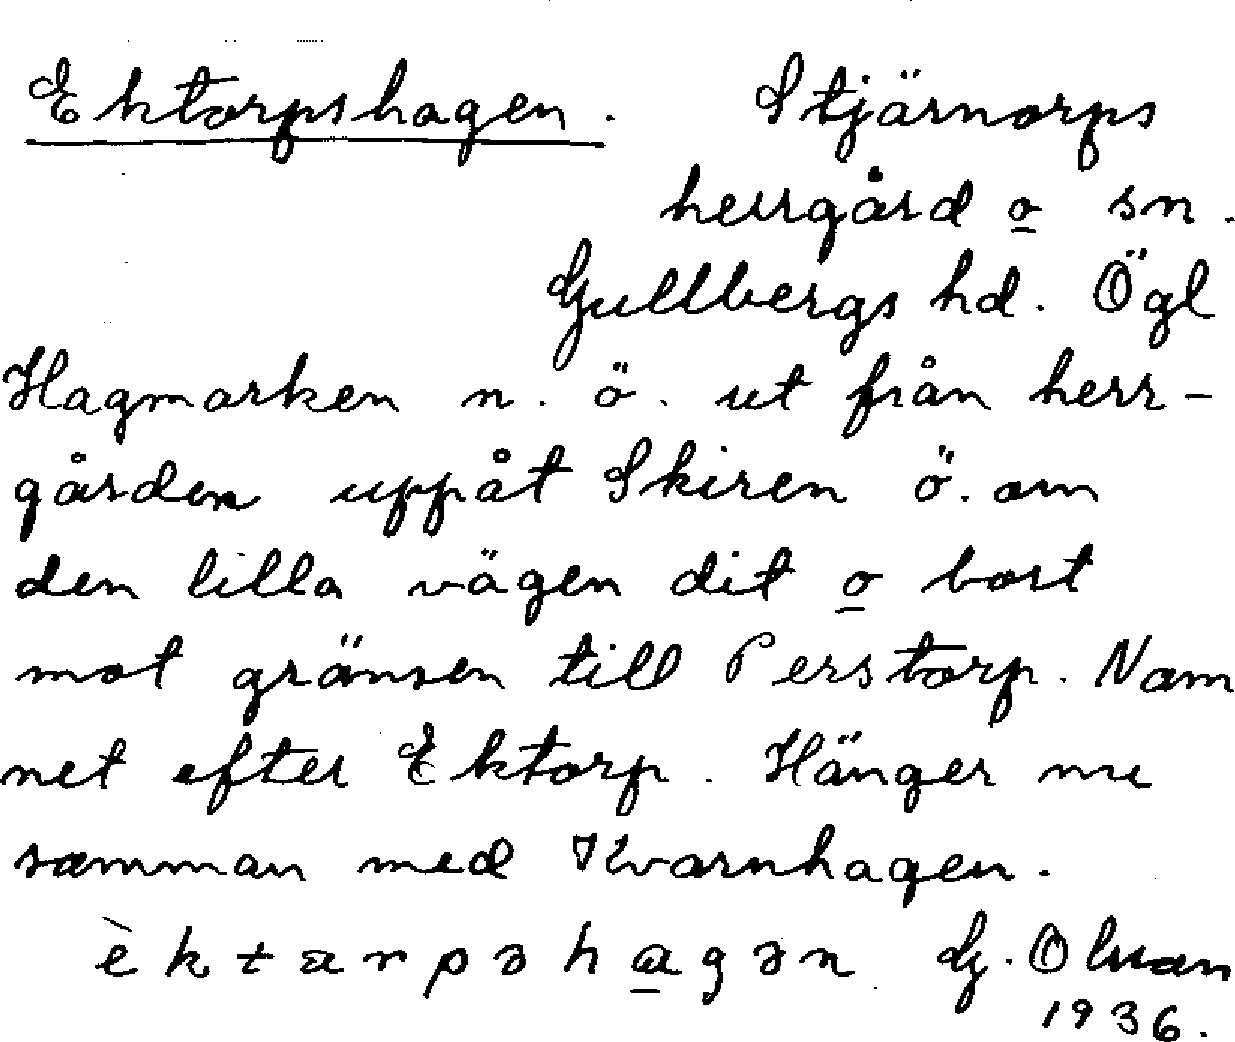 Ektorpshagen. Stjärnorps
herrgård o sn.
Gullbergs hd. Ögl
Hagmarken n. ö. ut från herr-
gården uppåt Skiren ö. om
den lilla vägen dit o bort
mot gränsen till Perstorp. Nam
net efter Ektorp. Hänger nu
samman med Kvarnhagen.
èktarpshagən G. Olsson
1936.